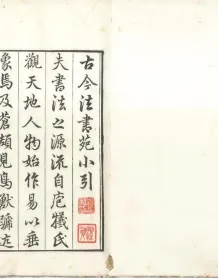 古今法書苑小引
夫書法之源流自庖犧氏
觀天地人物始作易以垂
象焉及蒼頡見鳥獸蹏迒